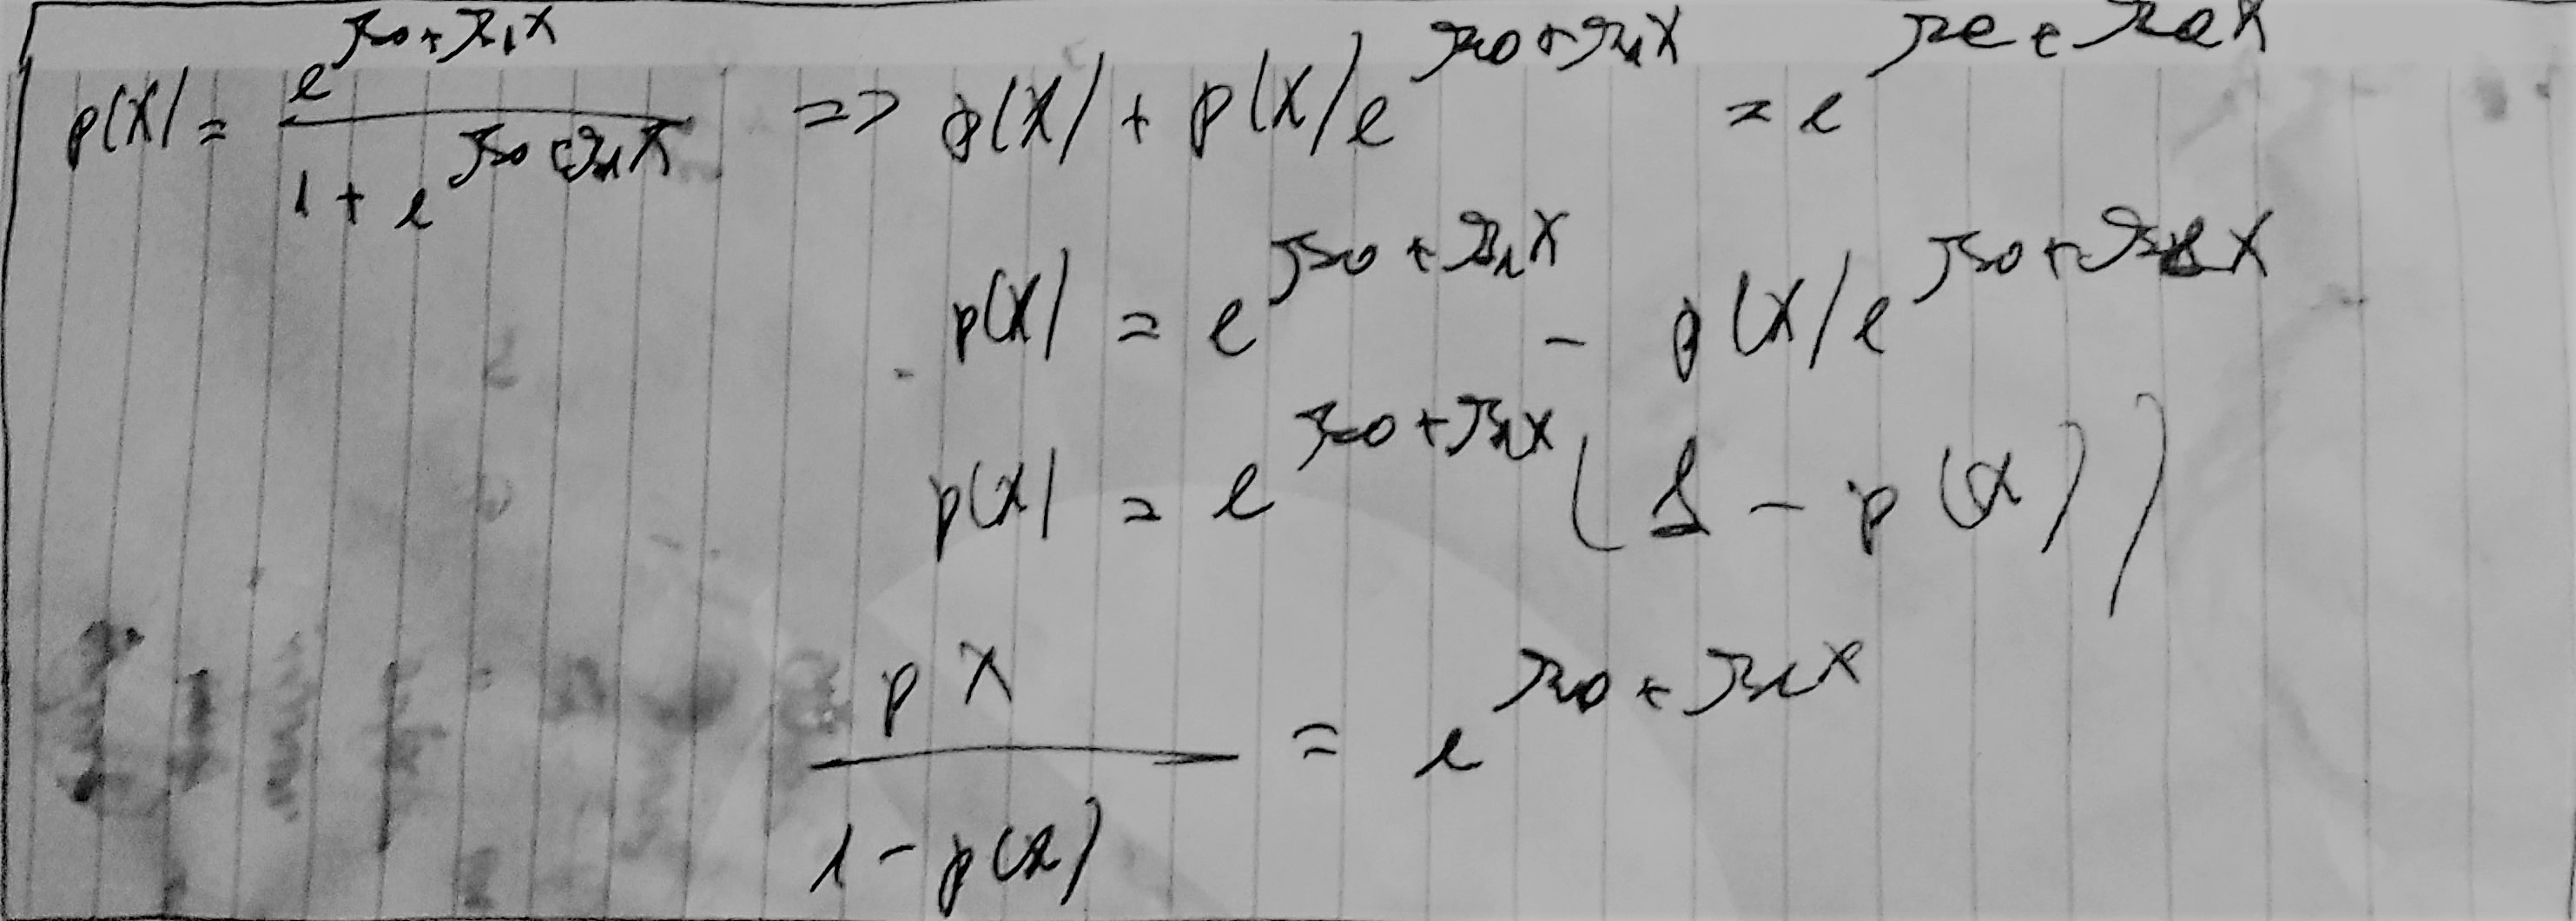 p(X) = e^{β0 + β1X} / 1 + e^{β0 + β1X} => p(X) + p(X)e^{β0 + β1X} = e^{β0 + β1X}
p(X) = e^{β0 + β1X} - p(X)e^{β0 + β1X}
p(X) = e^{β0 + β1X} (1 - p(X))
pX / 1 - p(X) = e^{β0 + β1X}